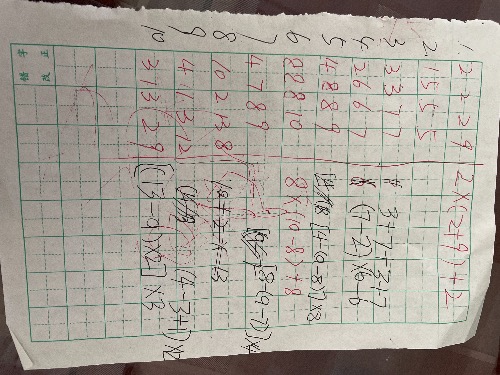 1. 2 2 2 9 2×(2+9)+2
2. 1 5 5 5
3. 3 3 7 7
4. 2 6 6 7 (7-2)×6-6
5. 4 8 8 9 [4-(9-8)]×8
6. 8 8 8 10 8×(10-8)+8
7. 4 7 8 9 [8-(9-7)]×4
8. 10 2 13 8
9. 4 1 3 12 (4-3+1)×12
10. 3 13 2 9 [(13-9)×2]×3
错字
改正